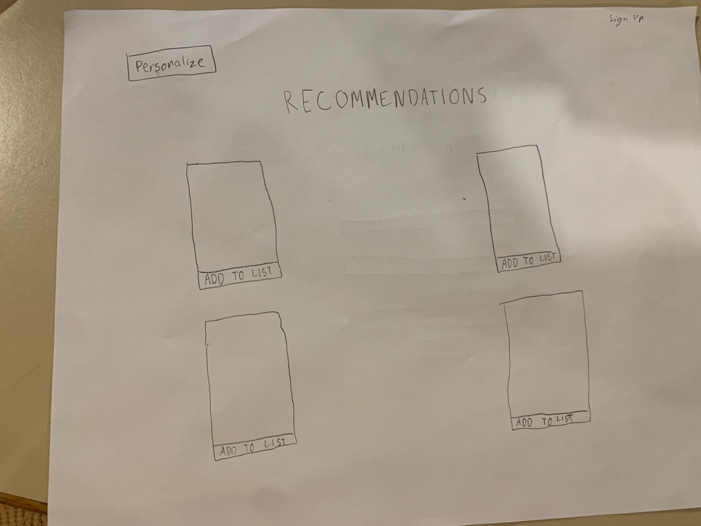 Sign Up
Personalize
RECOMMENDATIONS
ADD TO LIST
ADD TO LIST
ADD TO LIST
ADD TO LIST